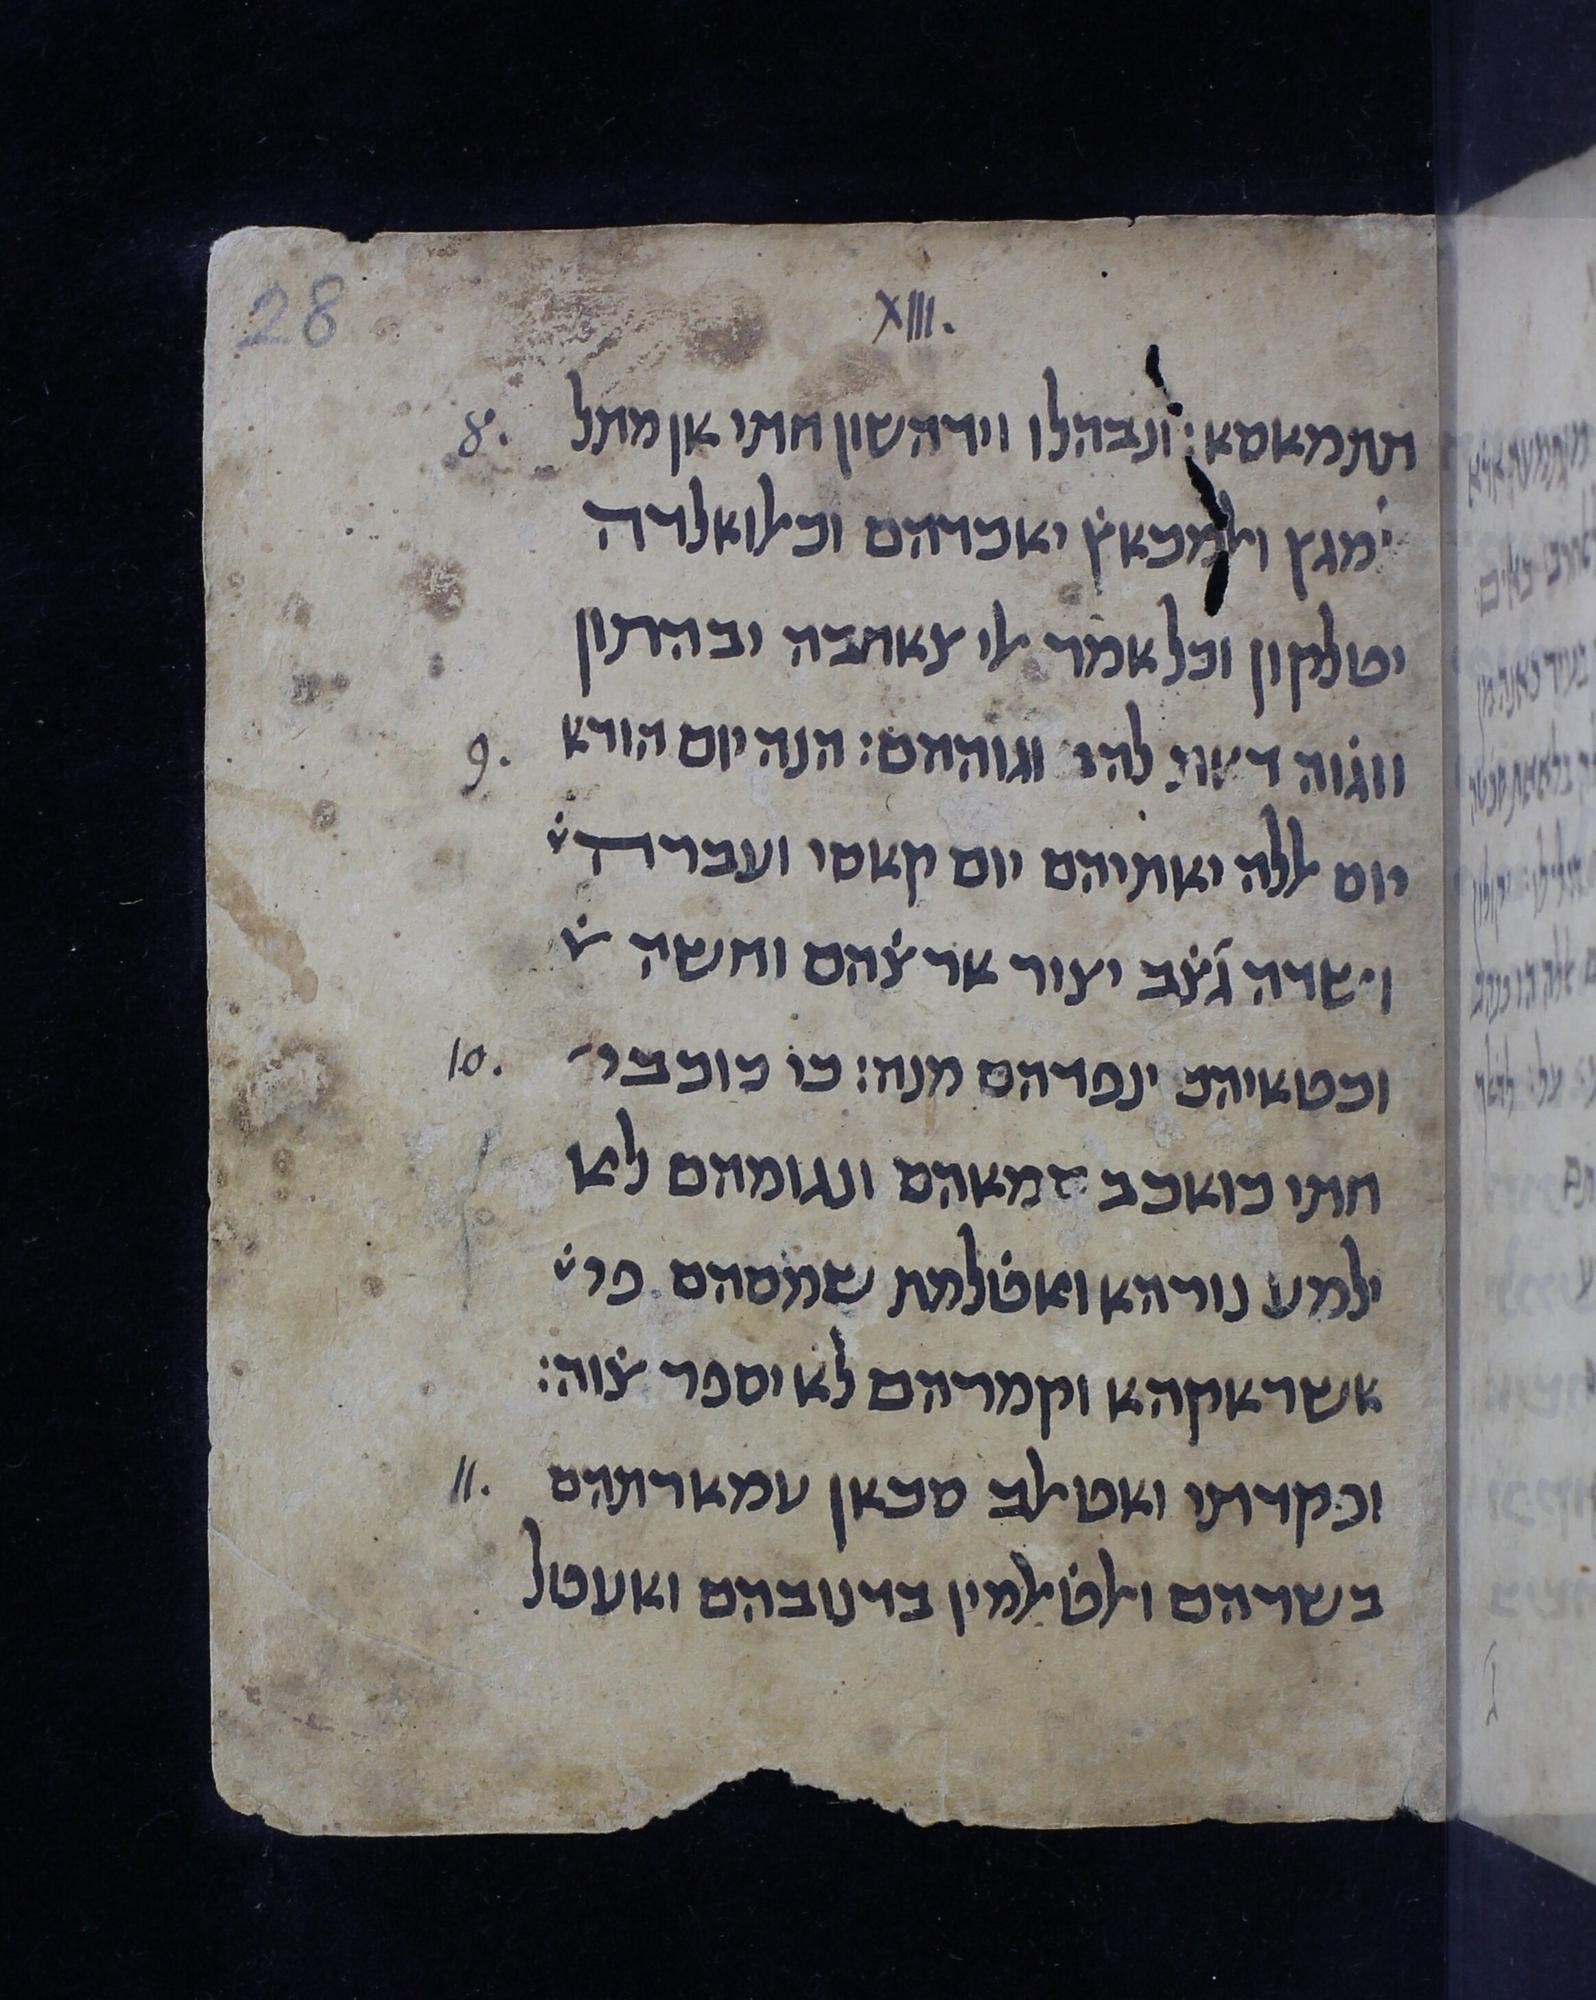 28
XIII.
תתמאסא: ונבהלו וידהשון חתי אן מתל 8.
ימגץ ולמכאץ יאכדהם וכלואלדה
יטלקון וכל אמר אלי צאחבה יבהתון
ווגוה וגוההם: הנה יום הורא 9.
יום אללה יאתיהם יום קאסי ועברה
ושדה גצב יציר ארצהם וחשה
וכטאיהם ינפדהם מנה: כי כוכבי 10.
חתי כואכב סמאהם ונגומהם לא
ילמע נורהא ואטלמת שמסהם פי
אשראקהא וקמרהם לא יספר צוה:
ופקדתי ואטאלב סכאן עמארתהם 11.
בשרהם ואלטאלמין בדנובהם ואעטל